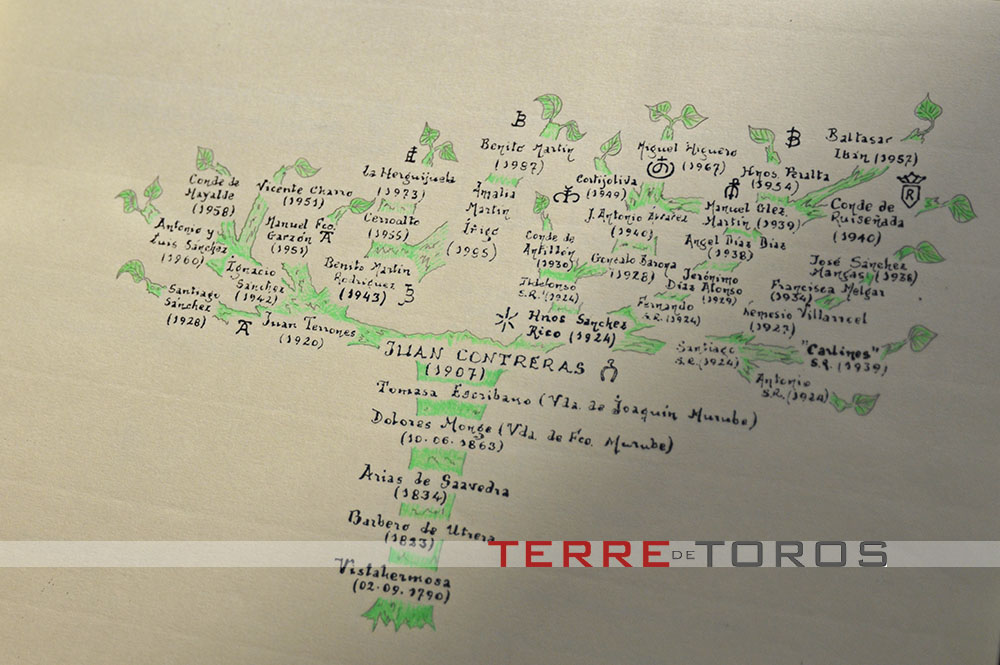 B
Benito Martin
(1987)
Miguel Higuero
(1967)
B
Baltasar
Ibán (1957)
Conde de
Mayalde
(1958)
Vicente Charro
(1951)
La Horquijuela
(1973)
Amalia
Martin
Íñigo
(1985)
Cortijoliva
(1949)
Hnos. Peralta
(1954)
R
Conde de
Ruiseñada
(1940)
Antonio y
Luis Sánchez
(1960)
Manuel Fco.
Garzón
(1951)
Cerroalto
(1955)
J. Antonio Alvarez
(1940)
Manuel Glez.
Martin (1939)
Conde de
Antillón
(1930)
Gonzalo Barona
(1928)
Angel Diaz Diaz
(1938)
José Sánchez
Mangas (1936)
Ignacio
Sánchez
(1942)
Benito Martin
Rodriguez
(1943)
Ildefonso
S.R. (1924)
Jerónimo
Diaz Alonso
(1929)
Francisca Melgar
(1934)
Santiago
Sánchez
(1928)
Fernando
S.R. (1924)
Nemesio Villarroel
(1927)
Juan Terrones
(1920)
Hnos Sánchez
Rico (1924)
Santiago
S.R. (1924)
"Carlines"
S.R. (1939)
Antonio
S.R. (1924)
JUAN CONTRERAS
(1907)
Tomasa Escribano (Vda. de Joaquin Murube)
Dolores Monge (Vda. de Fco. Murube)
(10.06.1863)
Arias de Saavedra
(1834)
Barbero de Utrera
(1823)
TERRE DE TOROS
Vistahermosa
(02.09.1790)